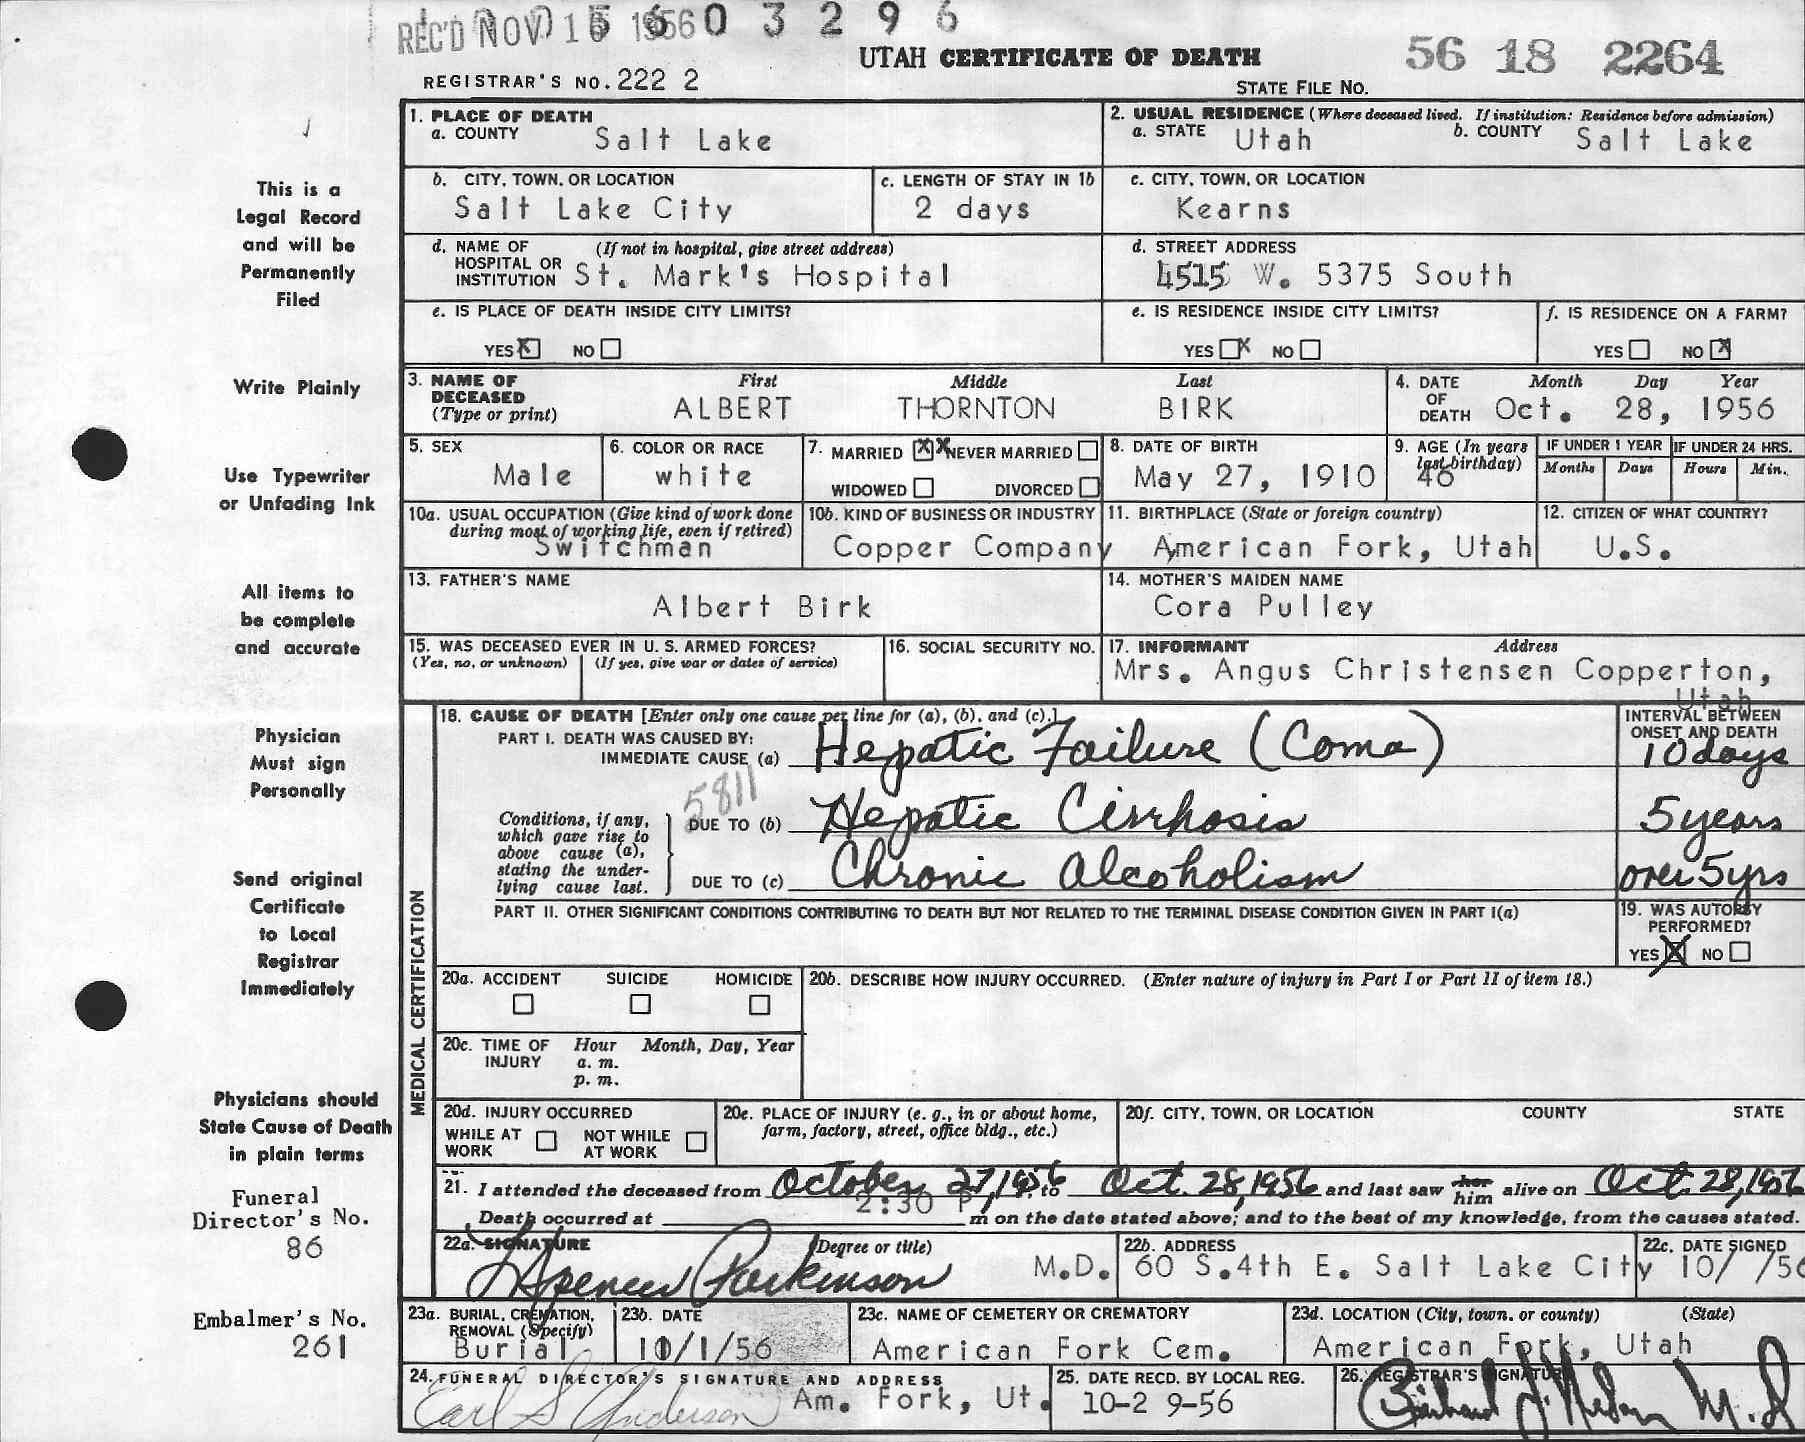 REC'D NOV 1 1956 0 3 2 9 6
UTAH CERTIFICATE OF DEATH
56 18 2264
REGISTRAR'S NO. 222 2
STATE FILE NO.
1. PLACE OF DEATH
a. COUNTY Salt Lake
2. USUAL RESIDENCE (Where deceased lived. If institution: Residence before admission)
a. STATE Utah b. COUNTY Salt Lake
b. CITY, TOWN, OR LOCATION
Salt Lake City
c. LENGTH OF STAY IN 1b
2 days
c. CITY, TOWN, OR LOCATION
Kearns
d. NAME OF HOSPITAL OR INSTITUTION (If not in hospital, give street address)
St. Mark's Hospital
d. STREET ADDRESS
4515 W. 5375 South
e. IS PLACE OF DEATH INSIDE CITY LIMITS?
YES X NO
e. IS RESIDENCE INSIDE CITY LIMITS?
YES X NO
f. IS RESIDENCE ON A FARM?
YES NO X
3. NAME OF DECEASED (Type or print)
First Middle Last
ALBERT THORNTON BIRK
4. DATE OF DEATH
Month Day Year
Oct. 28, 1956
5. SEX
Male
6. COLOR OR RACE
white
7. MARRIED X X NEVER MARRIED
WIDOWED DIVORCED
8. DATE OF BIRTH
May 27, 1910
9. AGE (In years last birthday)
46
IF UNDER 1 YEAR
Months Days
IF UNDER 24 HRS.
Hours Min.
10a. USUAL OCCUPATION (Give kind of work done
during most of working life, even if retired)
Switchman
10b. KIND OF BUSINESS OR INDUSTRY
Copper Company
11. BIRTHPLACE (State or foreign country)
American Fork, Utah
12. CITIZEN OF WHAT COUNTRY?
U.S.
13. FATHER'S NAME
Albert Birk
14. MOTHER'S MAIDEN NAME
Cora Pulley
15. WAS DECEASED EVER IN U. S. ARMED FORCES?
(Yes, no, or unknown) (If yes, give war or dates of service)
16. SOCIAL SECURITY NO.
17. INFORMANT Address
Mrs. Angus Christensen Copperton,
Utah
MEDICAL CERTIFICATION
18. CAUSE OF DEATH [Enter only one cause per line for (a), (b), and (c).]
INTERVAL BETWEEN
ONSET AND DEATH
PART I. DEATH WAS CAUSED BY:
IMMEDIATE CAUSE (a) Hepatic Failure (Coma) 10 days
5811
Conditions, if any,
which gave rise to
above cause (a),
stating the under-
lying cause last.
DUE TO (b) Hepatic Cirrhosis 5 years
DUE TO (c) Chronic Alcoholism over 5 yrs
PART II. OTHER SIGNIFICANT CONDITIONS CONTRIBUTING TO DEATH BUT NOT RELATED TO THE TERMINAL DISEASE CONDITION GIVEN IN PART I(a)
19. WAS AUTOPSY
PERFORMED?
YES X NO
20a. ACCIDENT SUICIDE HOMICIDE
20b. DESCRIBE HOW INJURY OCCURRED. (Enter nature of injury in Part I or Part II of item 18.)
20c. TIME OF INJURY
Hour Month, Day, Year
a. m.
p. m.
20d. INJURY OCCURRED
WHILE AT WORK NOT WHILE AT WORK
20e. PLACE OF INJURY (e. g., in or about home,
farm, factory, street, office bldg., etc.)
20f. CITY, TOWN, OR LOCATION COUNTY STATE
21. I attended the deceased from October 27, 1956 to Oct. 28, 1956 and last saw her him alive on Oct. 28, 1956
Death occurred at 2:30 P. m on the date stated above; and to the best of my knowledge, from the causes stated.
22a. SIGNATURE (Degree or title)
Spencer Parkinson M.D.
22b. ADDRESS
60 S.4th E. Salt Lake City
22c. DATE SIGNED
10/ /56
23a. BURIAL, CREMATION,
REMOVAL (Specify)
Burial
23b. DATE
10/1/56
23c. NAME OF CEMETERY OR CREMATORY
American Fork Cem.
23d. LOCATION (City, town, or county) (State)
American Fork, Utah
24. FUNERAL DIRECTOR'S SIGNATURE AND ADDRESS
Earl S Anderson Am. Fork, Ut.
25. DATE RECD. BY LOCAL REG.
10-2 9-56
26. REGISTRAR'S SIGNATURE
M.D.
This is a
Legal Record
and will be
Permanently
Filed
Write Plainly
Use Typewriter
or Unfading Ink
All items to
be complete
and accurate
Physician
Must sign
Personally
Send original
Certificate
to Local
Registrar
Immediately
Physicians should
State Cause of Death
in plain terms
Funeral
Director's No.
86
Embalmer's No.
261